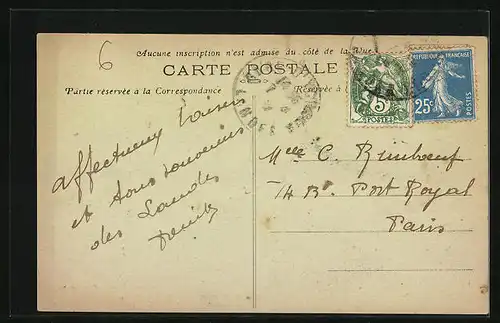 6
Aucune inscription n'est admise du côté de la Vue
CARTE POSTALE
Partie réservée à la Correspondance
Réservée à
REPUBLIQUE FRANÇAISE
5c
POSTES
25c
POSTES
affectueux baisers
et tous souvenirs
des Landes
Melle C. Rimboeuf
74 Bd. Port Royal
Paris